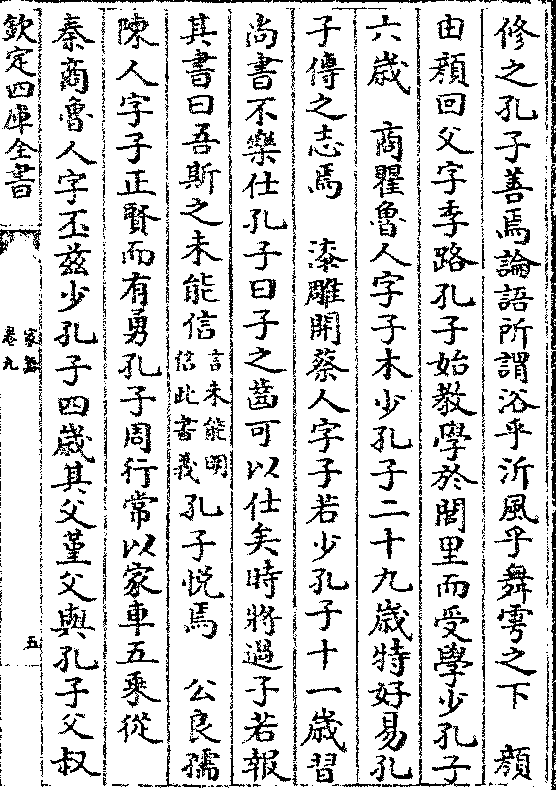 修之孔子善焉論語所謂浴乎沂風乎舞雩之下　顔
由顔回父字季路孔子始教學於闕里而受學少孔子
六歳　商瞿魯人字子木少孔子二十九歳特好易孔
子傳之志焉　漆雕開蔡人字子若少孔子十一歳習
尚書不樂仕孔子曰子之齒可以仕矣時將過子若報
其書曰吾斯之未能信言未能明信此書義孔子悅焉　公良孺
陳人字子正賢而有勇孔子周行常以家車五乘從
秦商魯人字丕兹少孔子四歳其父堇父與孔子父叔
欽定四庫全書
家語
卷九
五